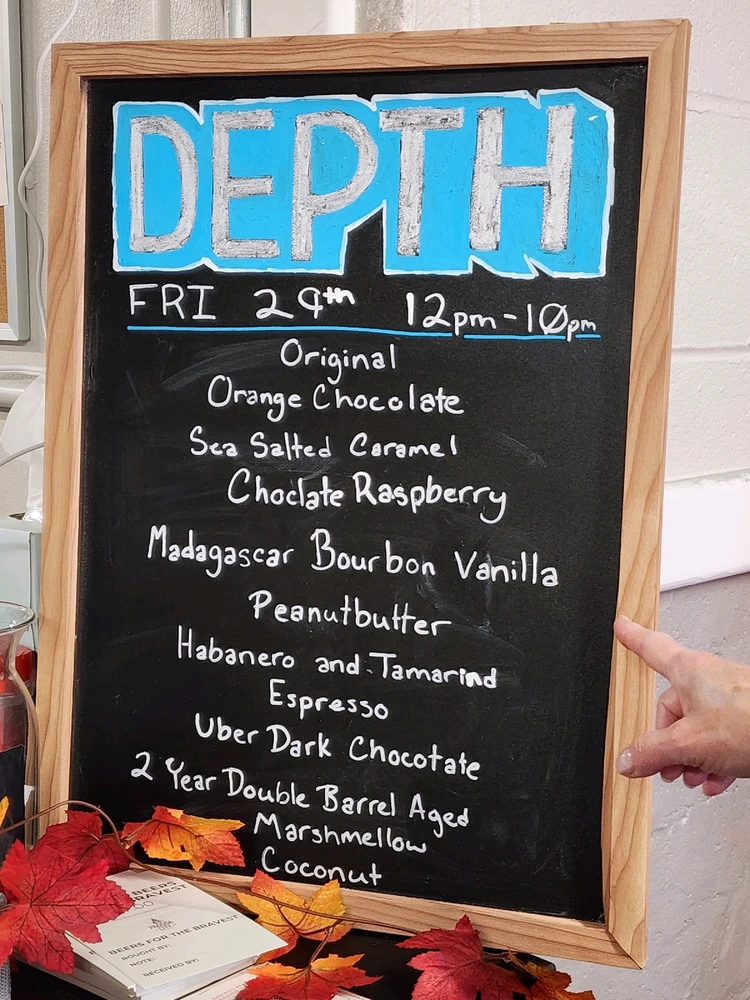 DEPTH
FRI 29th 12pm-10pm
Original
Orange Chocolate
Sea Salted Caramel
Choclate Raspberry
Madagascar Bourbon Vanilla
Peanutbutter
Habanero and Tamarind
Espresso
Uber Dark Chocotate
2 Year Double Barrel Aged
Marshmellow
Coconut
BEERS
BRAVEST
BEERS FOR THE BRAVEST
BOUGHT BY:
NOTE:
RECEIVED BY: